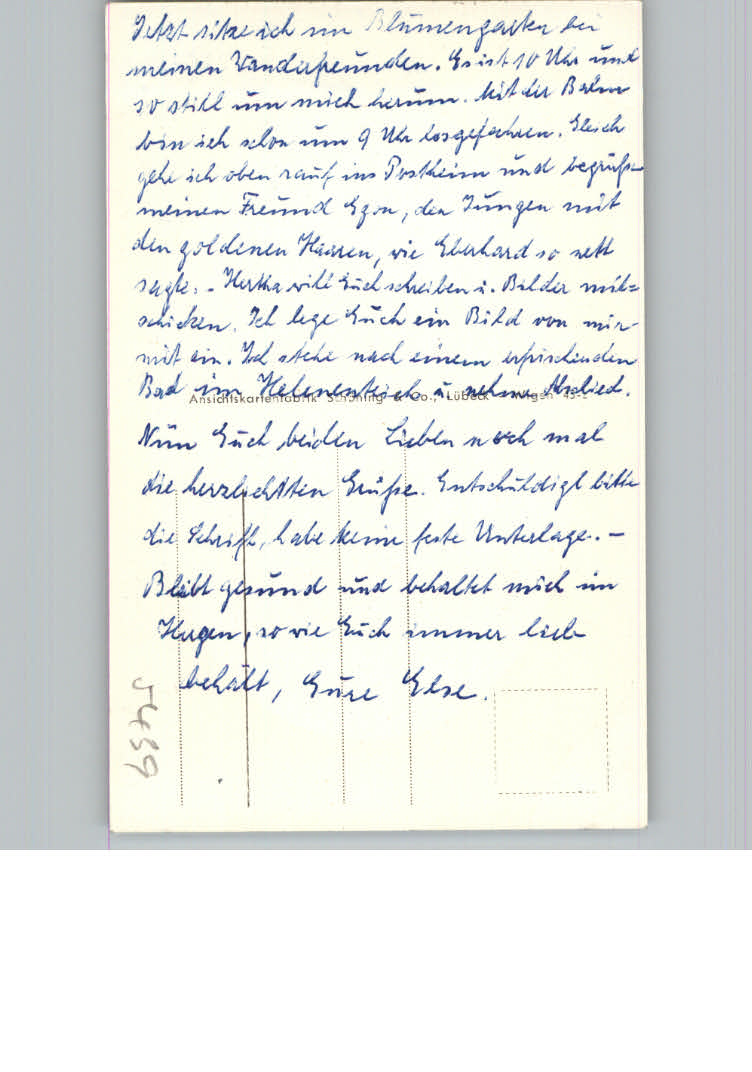 Jetzt sitze ich im Blumengarten bei
meinen Wanderfreunden. Es ist 10 Uhr und
so still um mich herum. Mit der Bahn
bin ich schon um 9 Uhr losgefahren. Gleich
gehe ich oben rauf ins Postheim und begrüße
meinen Freund Egon, den Jungen mit
den goldenen Haaren, wie Eberhard so nett
sagte. - Hertha will Euch schreiben u. Bilder mit=
schicken. Ich lege Euch ein Bild von mir
mit ein. Ich stehe nach einem erfrischenden
Bad im Helenenteich u. nehme Abschied.
Ansichtskartenfabrik Schöning & Co., Lübeck
Nun Euch beiden Lieben noch mal
die herzlichsten Grüße. Entschuldigt bitte
die Schrift, habe keine feste Unterlage. -
Bleibt gesund und behaltet mich im
Herzen, so wie Euch immer lieb
behält, Eure Else.
5489